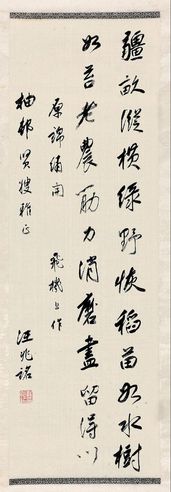 疆畝縱橫綠野恢稻苗如水樹
如苔老農筋力消磨盡留得川
原錦繡開 飛機上作
柚邨賢雅正 汪兆銘